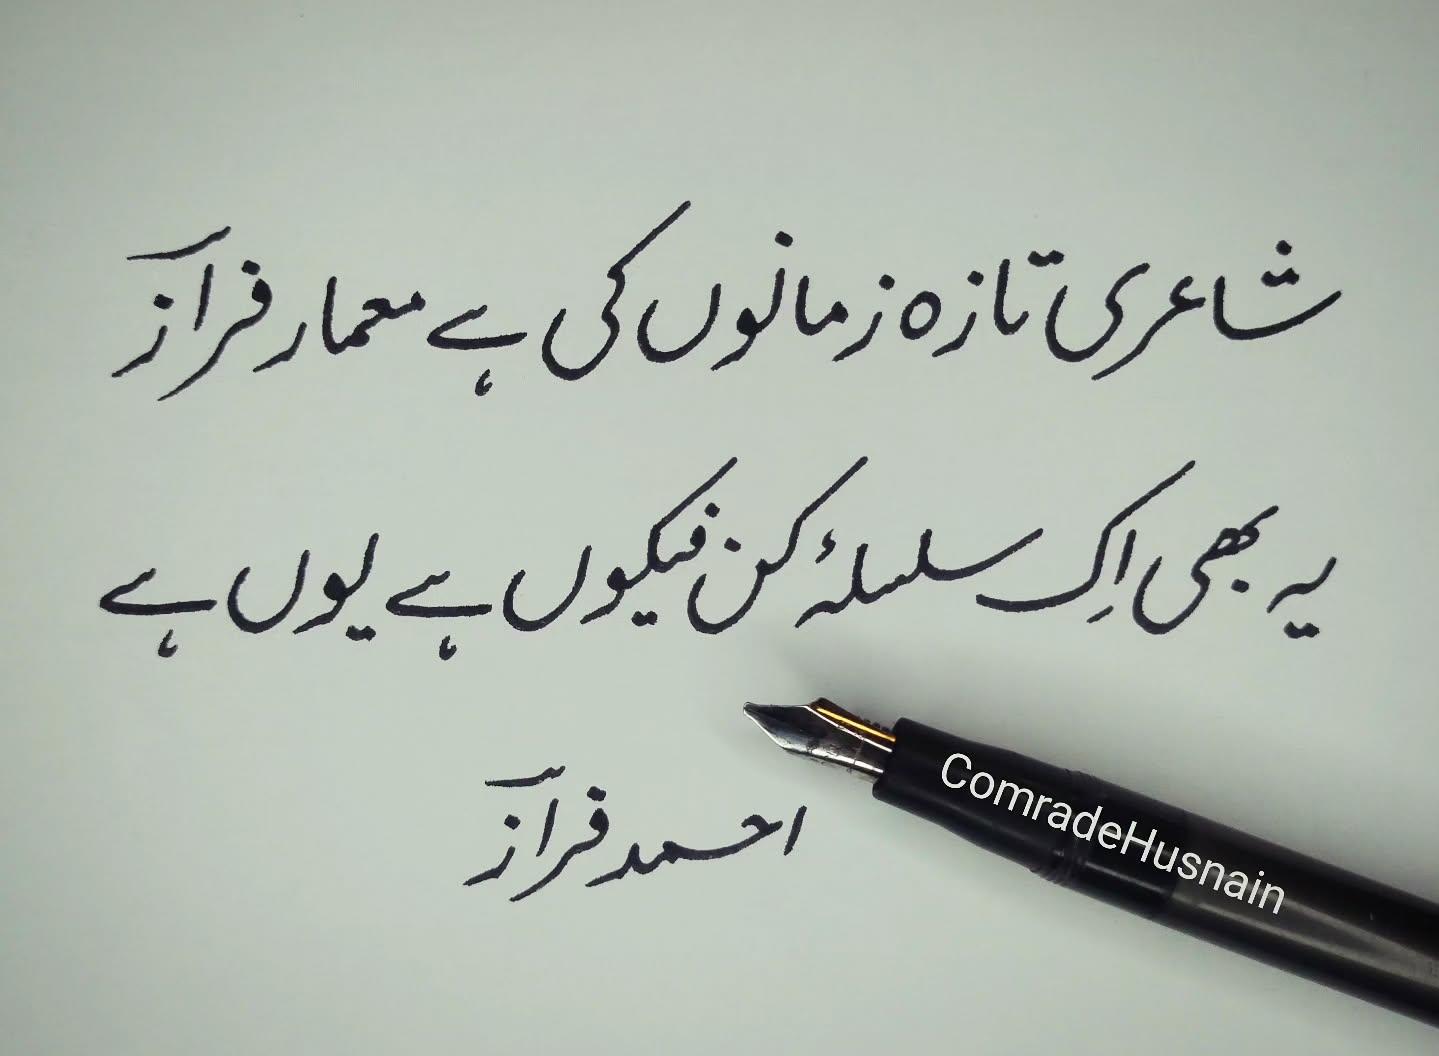 شاعری تازہ زمانوں کی ہے معمار فرازؔ
یہ بھی اِک سلسلۂ کن فیکوں ہے یوں ہے
احمد فرازؔ
ComradeHusnain